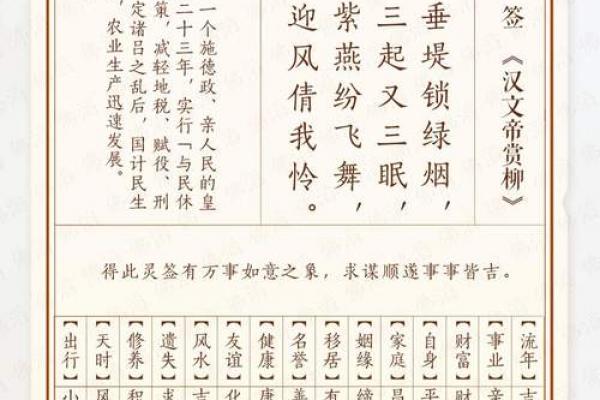 签 《汉文帝赏柳》
垂堤锁绿烟，
三起又三眠，
紫燕纷飞舞，
迎风倩我怜。
一个施德政、亲人民的皇
二十三年，实行「与民休
策，减轻地税、赋役、刑
定诸吕之乱后，国计民生
，农业生产迅速发展。
得此灵签有万事如意之象，求谋顺遂事事皆吉。
【流年】吉
【事业】
【财富】财
【自身】平
【家庭】昌
【姻缘】缔
【移居】有
【名誉】善
【健康】康
【友谊】化
【风水】吉
【遗失】求
【修养】积
【天时】风
【出行】小